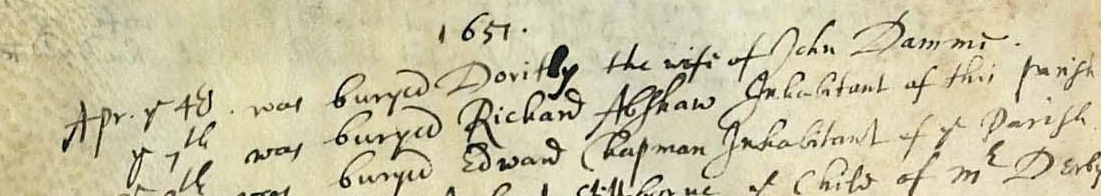 1651.
Apr. ye 4th. was buryed Dorithy the wife of John Damme.
ye 7th was buryed Richard Abshaw Inhabitant of this parish
th was buryed Edward Chapman Inhabitant of ye Parish.
borne ye Child of Mr Derby